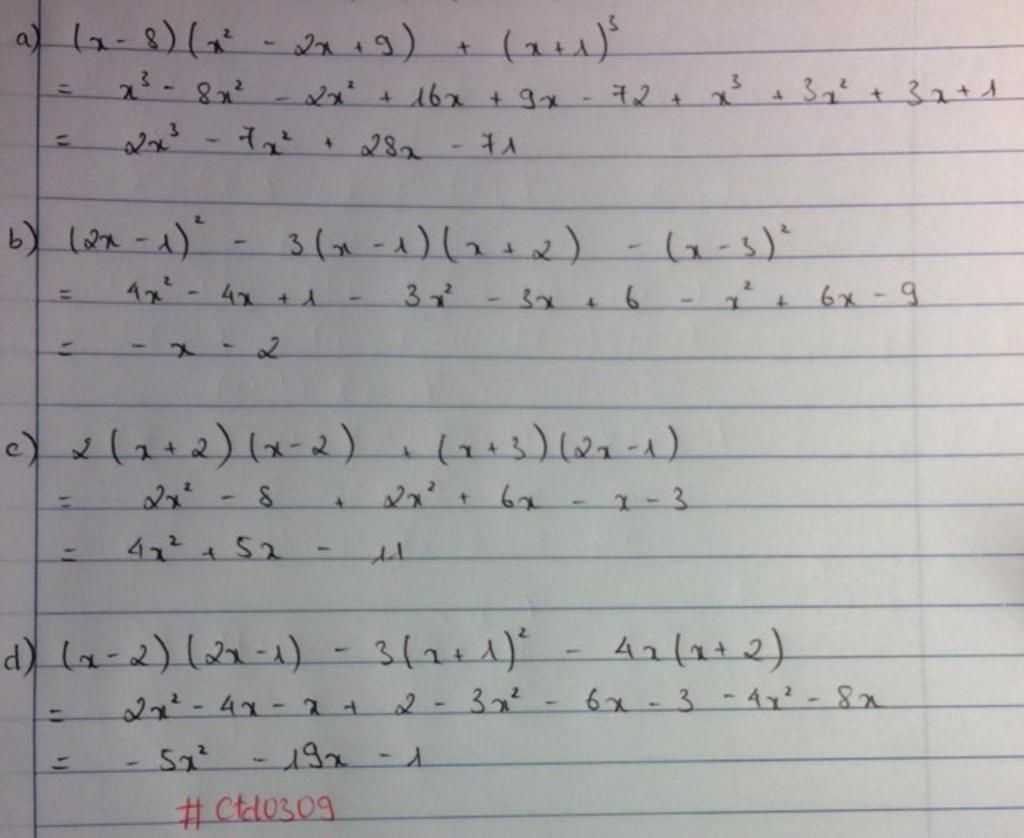 a) (x - 8)(x² - 2x + 9) + (x + 1)³
= x³ - 8x² - 2x² + 16x + 9x - 72 + x³ + 3x² + 3x + 1
= 2x³ - 7x² + 28x - 71
b) (2x - 1)² - 3(x - 1)(x + 2) - (x - 3)²
= 4x² - 4x + 1 - 3x² - 3x + 6 - x² + 6x - 9
= - x - 2
c) 2(x + 2)(x - 2) + (x + 3)(2x - 1)
= 2x² - 8 + 2x² + 6x - x - 3
= 4x² + 5x - 11
d) (x - 2)(2x - 1) - 3(x + 1)² - 4x(x + 2)
= 2x² - 4x - x + 2 - 3x² - 6x - 3 - 4x² - 8x
= - 5x² - 19x - 1
#Ctd0309